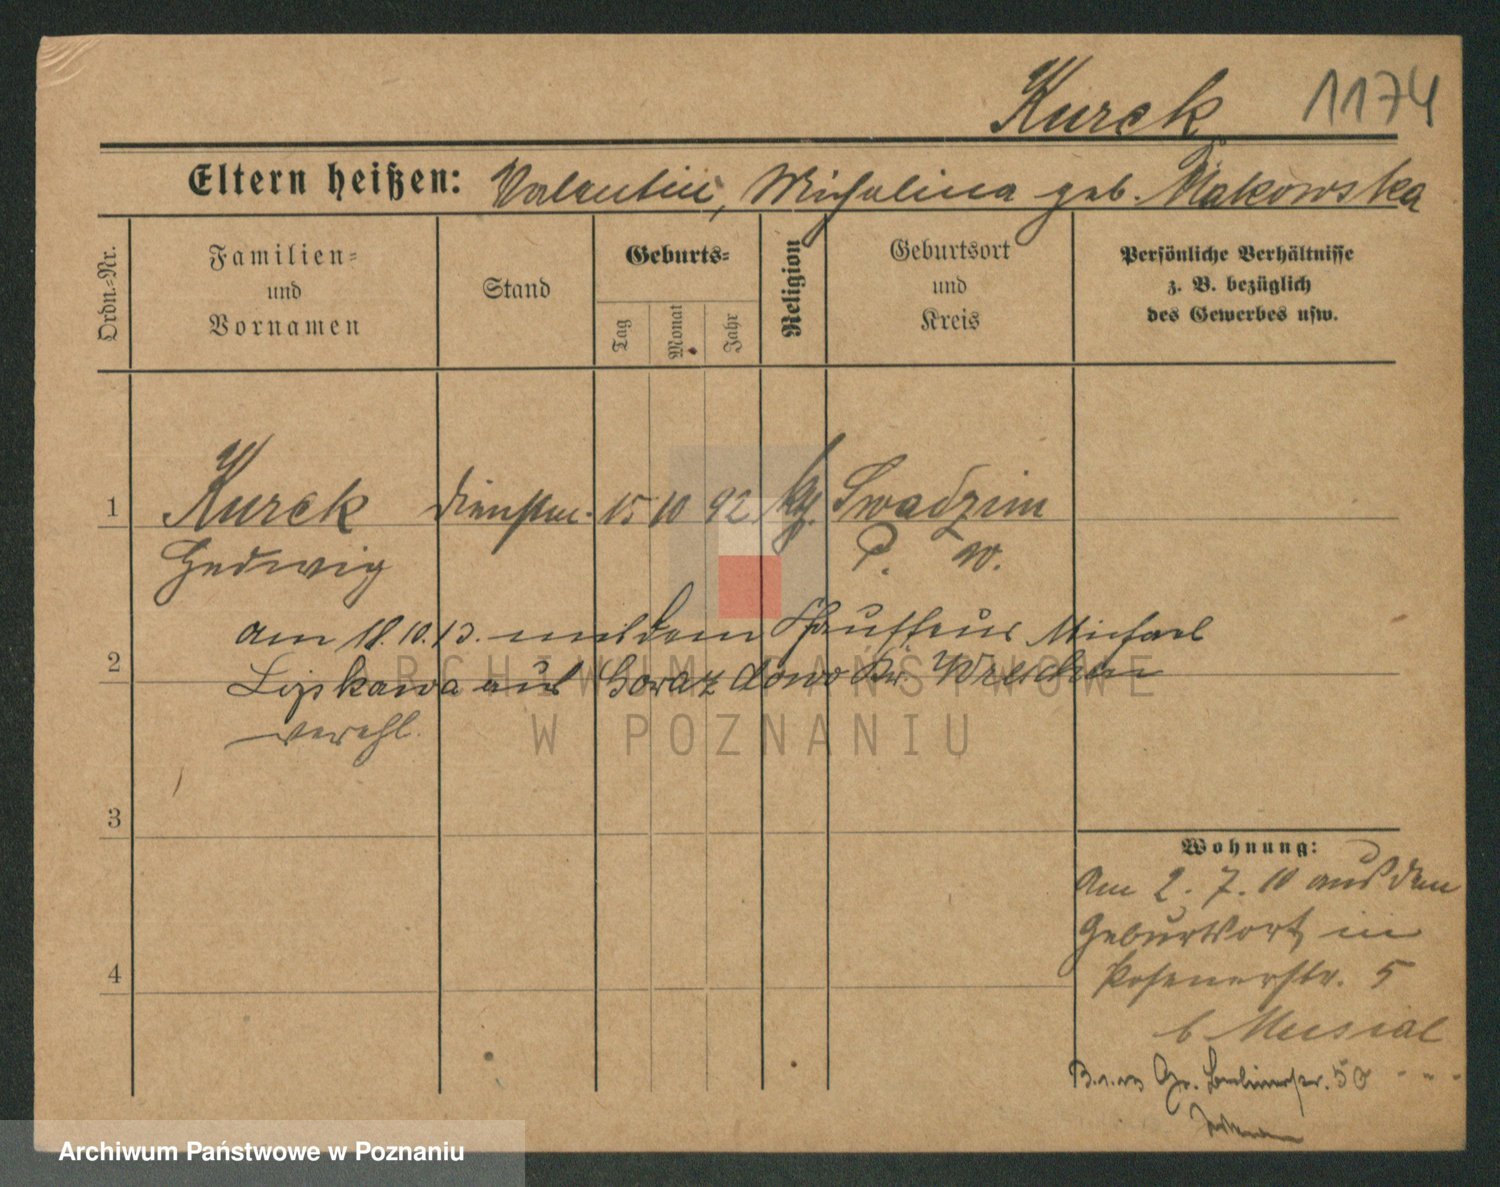 Kurek 1174
Eltern heißen: Valentin, Michalina geb. Makowska
Ordn.-Nr.
Familien-
und
Vornamen
Stand
Geburts-
Tag
Monat
Jahr
Religion
Geburtsort
und
Kreis
Persönliche Verhältnisse
z. B. bezüglich
des Gewerbes usw.
1 Kurek Dienstm. 15 10 92 kth. Swadzim
Hedwig P. W.
am 18.10.13. mit dem Chauffeur Michael
2 aus Gorazdowo Kr. Wreschen
verehl.
3
4
Wohnung:
Am 2. 7. 10 aus dem
Geburtsort in
Posenerstr. 5
b Musial
Gr. Berlinerstr. 50
ARCHIWUM PAŃSTWOWE
W POZNANIU
Archiwum Państwowe w Poznaniu